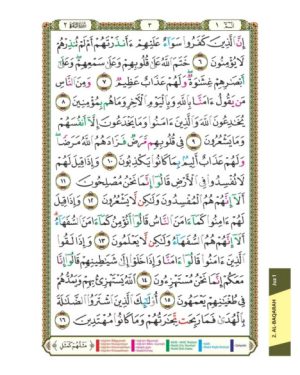 إِنَّ ٱلَّذِينَ كَفَرُوا۟ سَوَآءٌ عَلَيْهِمْ ءَأَنذَرْتَهُمْ أَمْ لَمْ تُنذِرْهُمْ
لَا يُؤْمِنُونَ ٦ خَتَمَ ٱللَّهُ عَلَىٰ قُلُوبِهِمْ وَعَلَىٰ سَمْعِهِمْ ۖ وَعَلَىٰٓ
أَبْصَٰرِهِمْ غِشَٰوَةٌ ۖ وَلَهُمْ عَذَابٌ عَظِيمٌ ٧ وَمِنَ ٱلنَّاسِ
مَن يَقُولُ ءَامَنَّا بِٱللَّهِ وَبِٱلْيَوْمِ ٱلْءَاخِرِ وَمَا هُم بِمُؤْمِنِينَ ٨
يُخَٰدِعُونَ ٱللَّهَ وَٱلَّذِينَ ءَامَنُوا۟ وَمَا يَخْدَعُونَ إِلَّآ أَنفُسَهُمْ
وَمَا يَشْعُرُونَ ٩ فِى قُلُوبِهِم مَّرَضٌ فَزَادَهُمُ ٱللَّهُ مَرَضًا ۖ
وَلَهُمْ عَذَابٌ أَلِيمٌۢ بِمَا كَانُوا۟ يَكْذِبُونَ ١٠ وَإِذَا قِيلَ لَهُمْ
لَا تُفْسِدُوا۟ فِى ٱلْأَرْضِ قَالُوٓا۟ إِنَّمَا نَحْنُ مُصْلِحُونَ ١١
أَلَآ إِنَّهُمْ هُمُ ٱلْمُفْسِدُونَ وَلَٰكِن لَّا يَشْعُرُونَ ١٢ وَإِذَا قِيلَ
لَهُمْ ءَامِنُوا۟ كَمَآ ءَامَنَ ٱلنَّاسُ قَالُوٓا۟ أَنُؤْمِنُ كَمَآ ءَامَنَ ٱلسُّفَهَآءُ ۗ
أَلَآ إِنَّهُمْ هُمُ ٱلسُّفَهَآءُ وَلَٰكِن لَّا يَعْلَمُونَ ١٣ وَإِذَا لَقُوا۟
ٱلَّذِينَ ءَامَنُوا۟ قَالُوٓا۟ ءَامَنَّا وَإِذَا خَلَوْا۟ إِلَىٰ شَيَٰطِينِهِمْ قَالُوٓا۟ إِنَّا
مَعَكُمْ إِنَّمَا نَحْنُ مُسْتَهْزِءُونَ ١٤ ٱللَّهُ يَسْتَهْزِئُ بِهِمْ وَيَمُدُّهُمْ
فِى طُغْيَٰنِهِمْ يَعْمَهُونَ ١٥ أُو۟لَٰٓئِكَ ٱلَّذِينَ ٱشْتَرَوُا۟ ٱلضَّلَٰلَةَ
بِٱلْهُدَىٰ فَمَا رَبِحَت تِّجَٰرَتُهُمْ وَمَا كَانُوا۟ مُهْتَدِينَ ١٦
مَثَلُهُمْ كَمَثَلِ
Juz 1
2. AL-BAQARAH